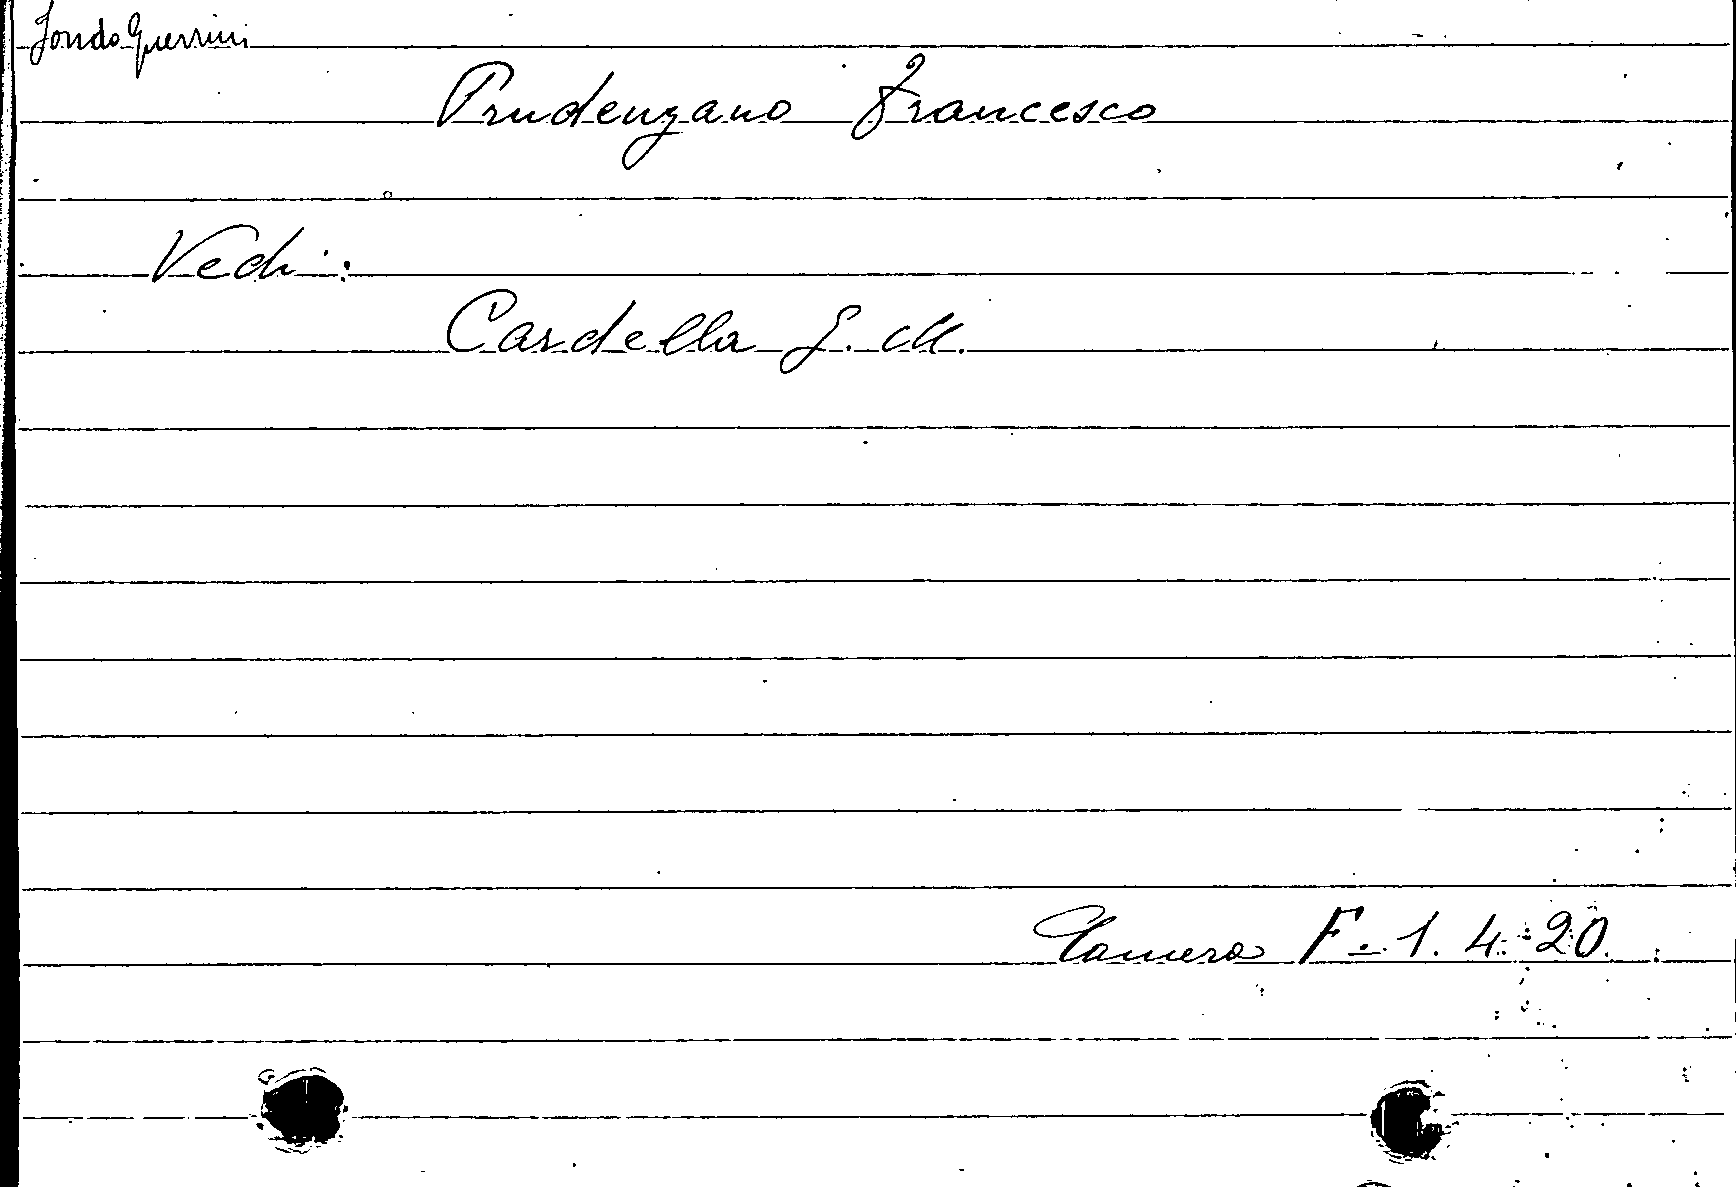 Fondo Guerrini
Prudenzano Francesco
Vedi:
Cardella G. M.
Camera F. 1. 4. 20.